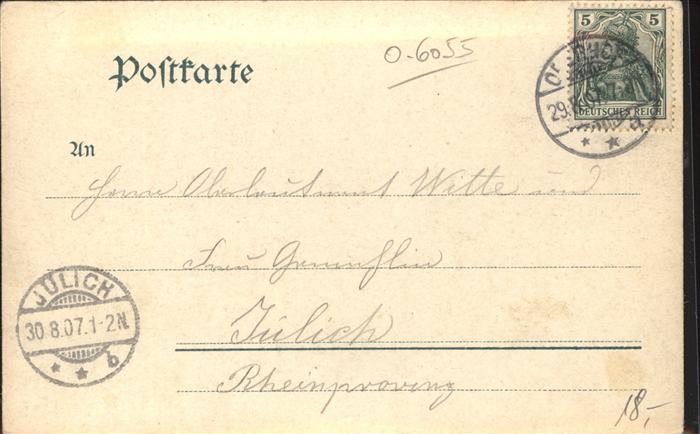 Postkarte
0-6055
5 5
DEUTSCHES REICH
29.8.07.7-
An
Herrn Oberleutnant Witte und
Frau Gemahlin
Jülich
Rheinprovinz
JÜLICH
30.8.07.1-2N.
* * b
18,-